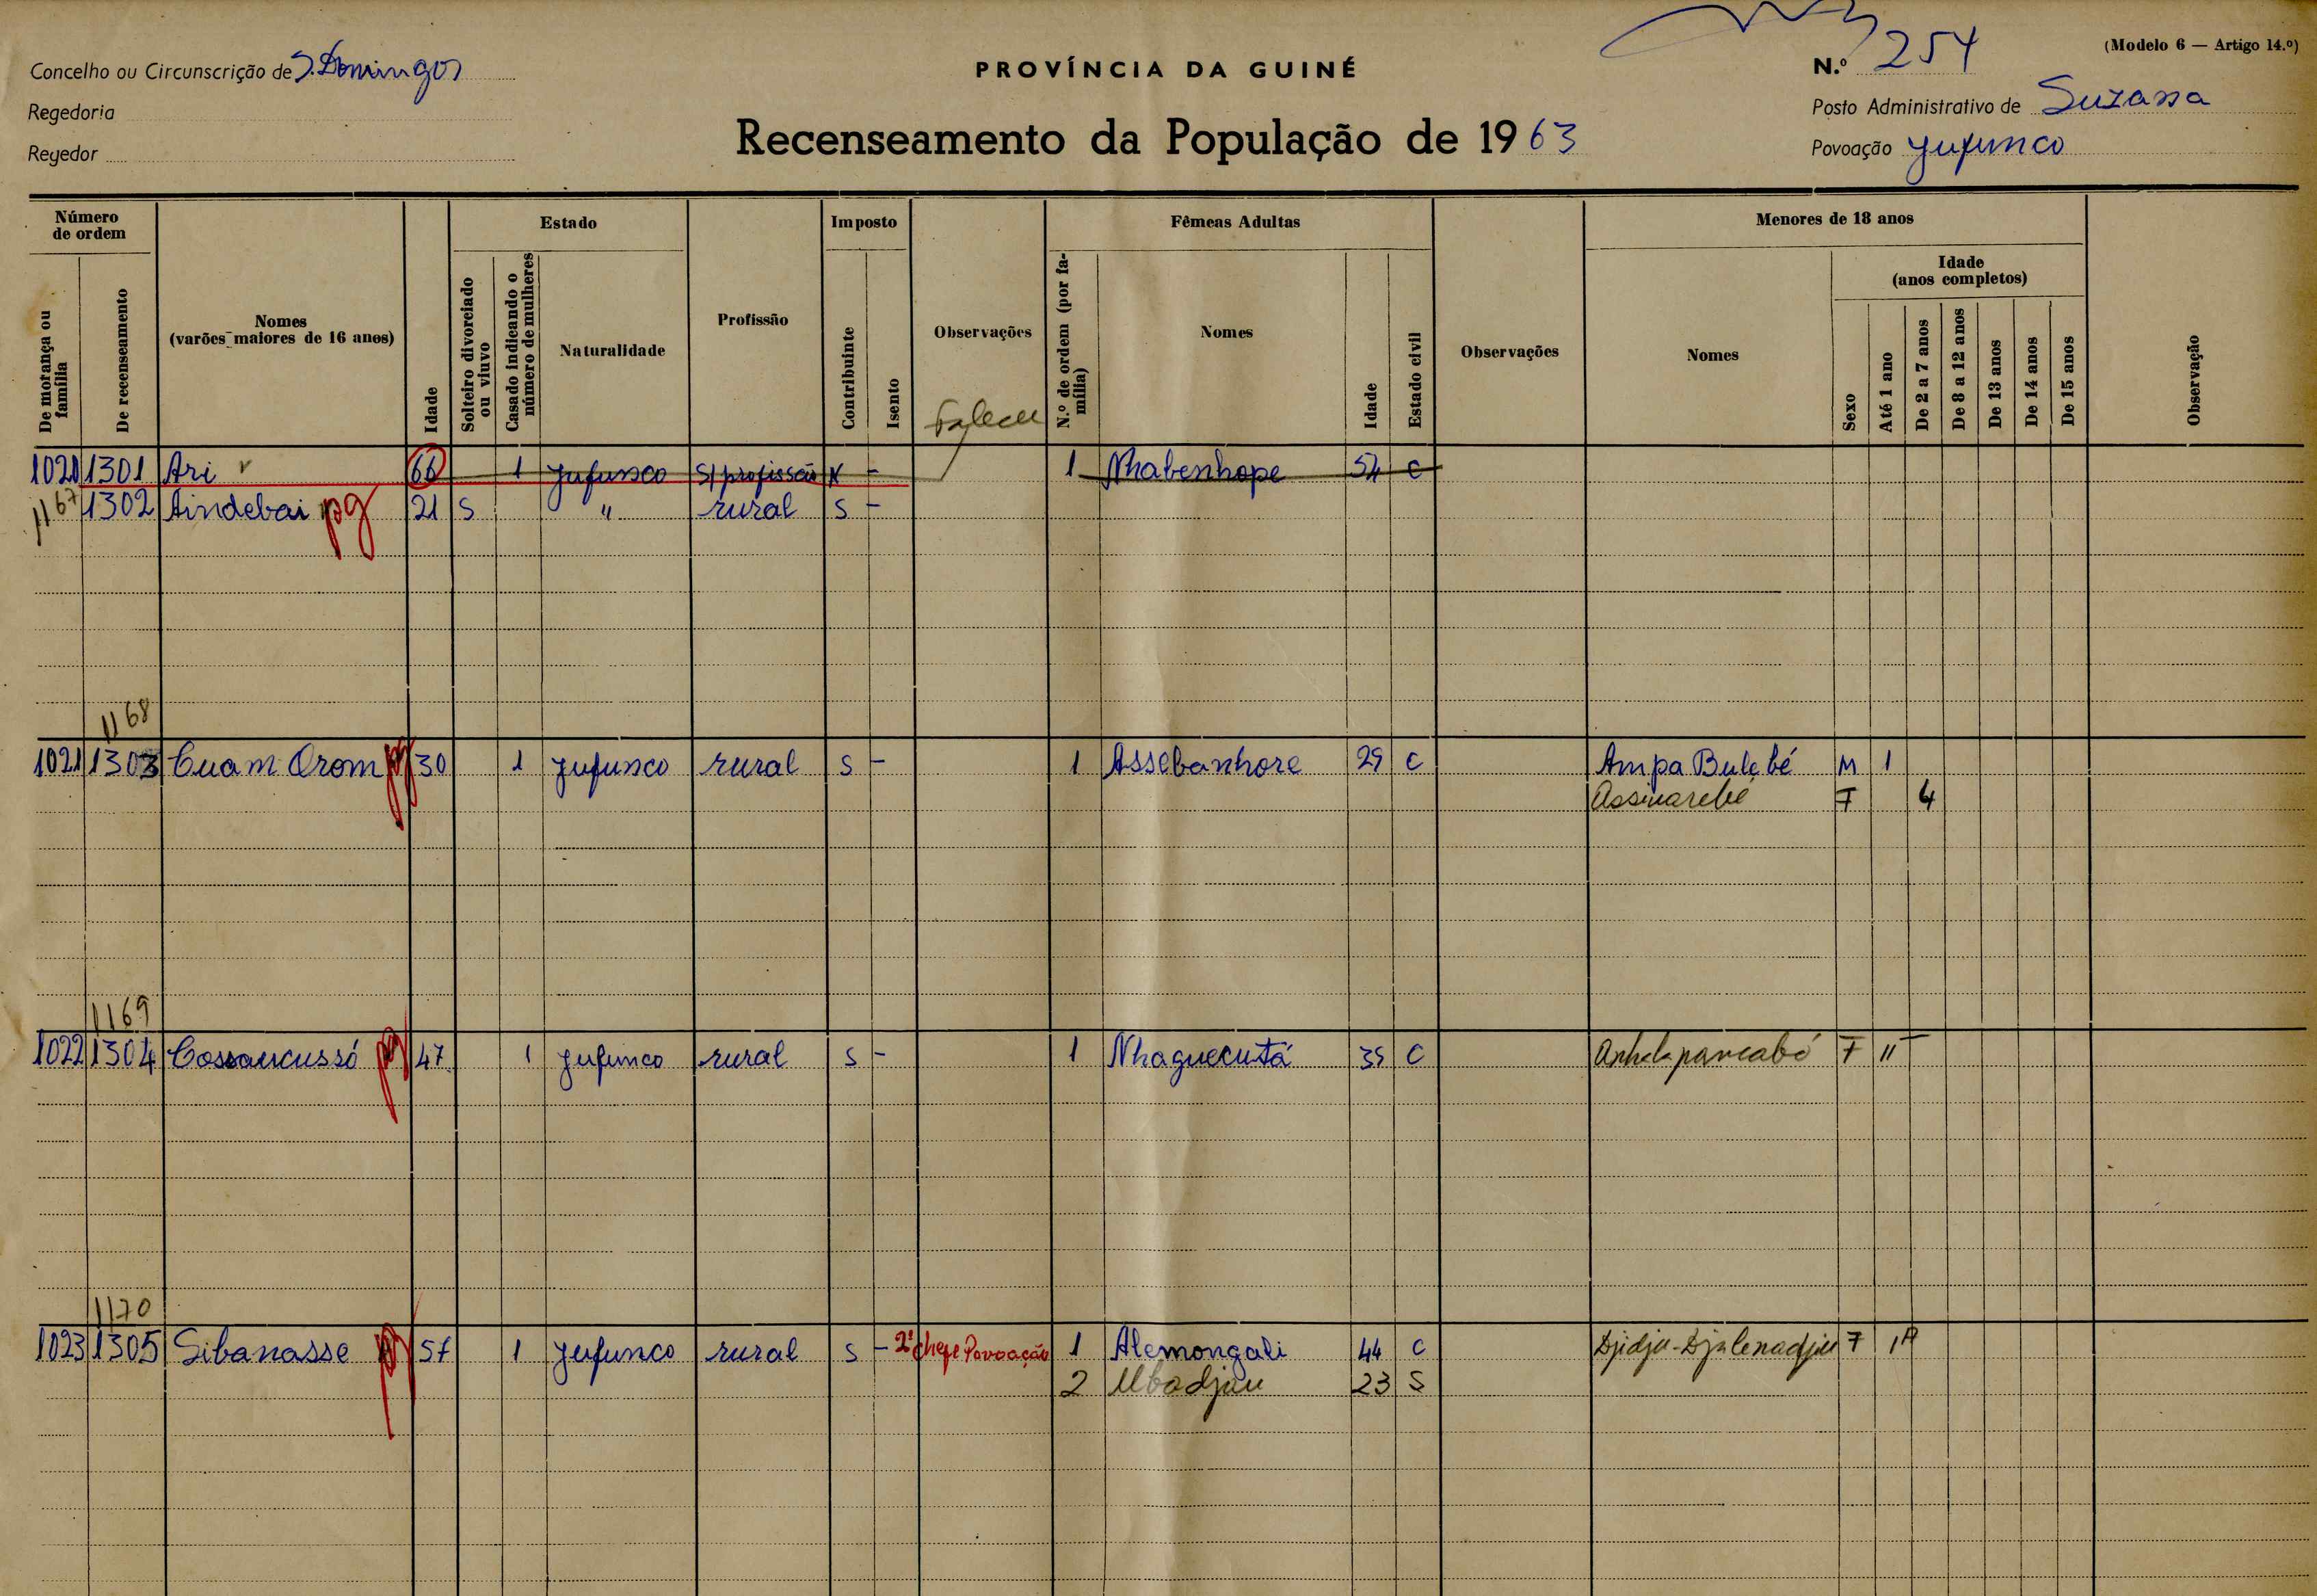 Concelho ou Circunscrição de S. Domingos
Regedoria
Regedor
PROVÍNCIA DA GUINÉ
Recenseamento da População de 1963
(Modelo 6 — Artigo 14.º)
N.º 254
Posto Administrativo de Suzana
Povoação Jufunco
Número de ordem
De morança ou família
De recenseamento
Nomes
(varões maiores de 16 anos)
Idade
Estado
Solteiro divorciado ou viuvo
Casado indicando o número de mulheres
Naturalidade
Profissão
Imposto
Contribuinte
Isento
Observações
Fêmeas Adultas
N.º de ordem (por família)
Nomes
Idade
Estado civil
Observações
Menores de 18 anos
Nomes
Sexo
Idade
(anos completos)
Até 1 ano
De 2 a 7 anos
De 8 a 12 anos
De 13 anos
De 14 anos
De 15 anos
Observação
Faleceu
1020 1301 Ari 66 1 Jufunco S/ profissão N - 1 Nhabenhope 54 C
1167 1302 Aindebai pg 21 S " rural S -
1168
1021 1303 Cuam Orom pg 30 1 Jufunco rural S - 1 Assebanhore 29 C Ampa Bulebé M 1
Assinarebé F 4
1169
1022 1304 pg 47 1 Jufunco rural S - 1 Nhaguecutá 35 C F 11
1170
1023 1305 Sibanasse pg 57 1 Jufunco rural S - 2º chefe Povoação 1 Alemongali 44 C Djidju-Djalenadjiu F
2 23 S